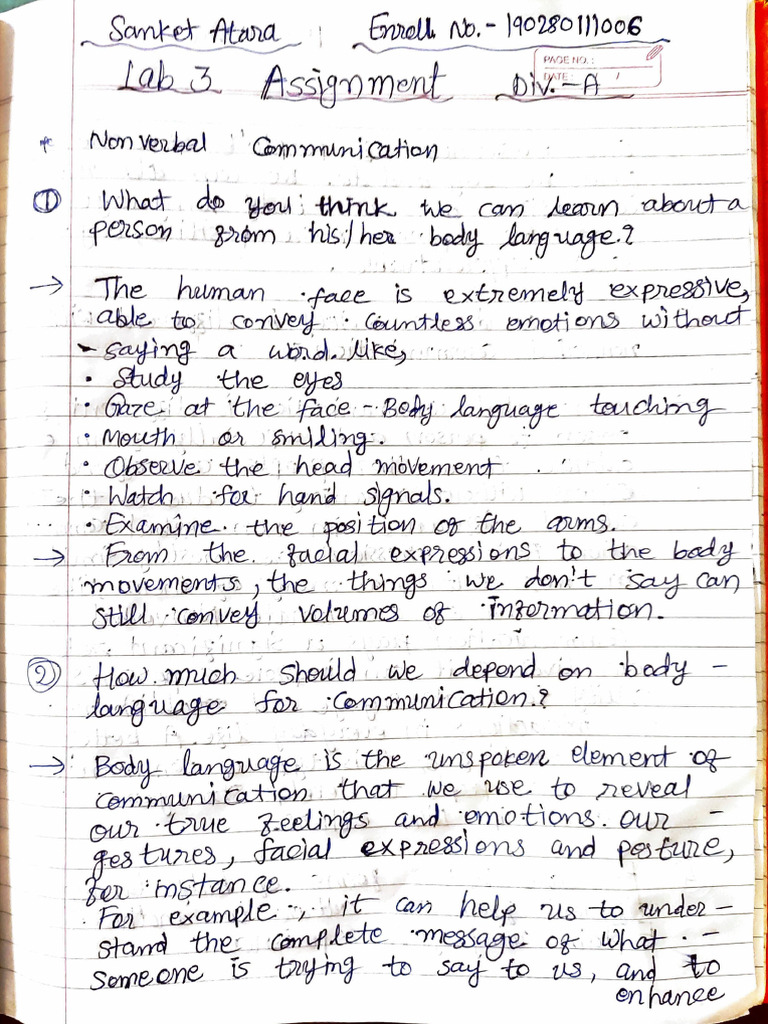 Sanket Atara Enroll. No. - 190280111006
PAGE NO.:
DATE:
Lab 3 Assignment Div. - A
* Nonverbal Communication
① What do you think we can learn about a
person from his/her body language.?
→ The human face is extremely expressive,
able to convey countless emotions without
- saying a word. like,
• Study the eyes
• Gaze at the face - Body language touching
• Mouth or smiling.
• Observe the head movement
• Watch for hand signals.
• Examine the position of the arms.
→ From the facial expressions to the body
movements, the things we don't say can
still convey volumes of information.
② How much should we depend on body -
language for communication.?
→ Body language is the unspoken element of
communication that we use to reveal
our true feelings and emotions. our -
gestures, facial expressions and posture,
for instance.
• For example, it can help us to under -
stand the complete message of what -
someone is trying to say to us, and to
enhance